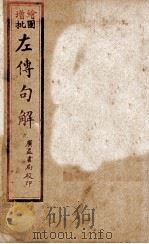 繪圖
增批
左傳句解
廣益書局